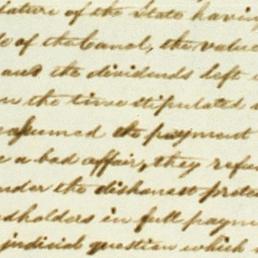 lature of the State having
of the Canal, the value
and the dividends left
the time stipulated
assumed the payment
a bad affair, they refu
nder the dishonest prete
ndholders in full paym
judicial question which